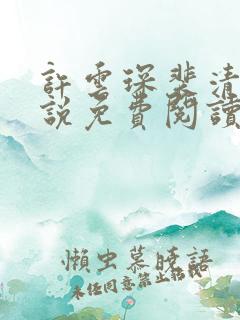 許雲琛裴清
說免費閱讀
懶虫慕曉語
未經同意禁止轉載